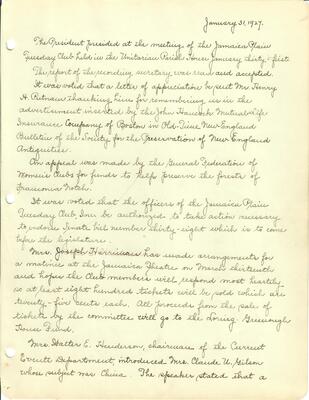 January 31, 1927.
The President presided at the meeting of the Jamaica Plain
Tuesday Club held in the Unitarian Parish House January thirty-first.
The report of the recording secretary was read and accepted.
It was voted that a letter of appreciation be sent Mr. Henry
H. Putnam thanking him for remembering us in the
advertisement inserted by the John Hancock Mutual Life
Insurance Company of Boston in Old-Time New England
Bulletin of the Society for the Preservation of New England
Antiquities.
An appeal was made by the General Federation of
Women's Clubs for funds to help preserve the forests of
Franconia Notch.
It was voted that the officers of the Jamaica Plain
Tuesday Club Inc. be authorized to take action necessary
to endorse Senate bill number thirty-eight which is to come
before the legislature.
Mrs. Joseph Harriman has made arrangements for
a matinee at the Jamaica Theatre on March thirteenth
and hopes the Club members will respond most heartily
so at least eight hundred tickets will be sold which are
twenty-five cents each. All proceeds from the sale of
tickets by the committee will go to the Loring Greenough
House Fund.
Mrs. Walter E. Henderson, chairman of the Current
Events Department, introduced Mrs. Claude U. Gilson
whose subject was China. The speaker stated that a